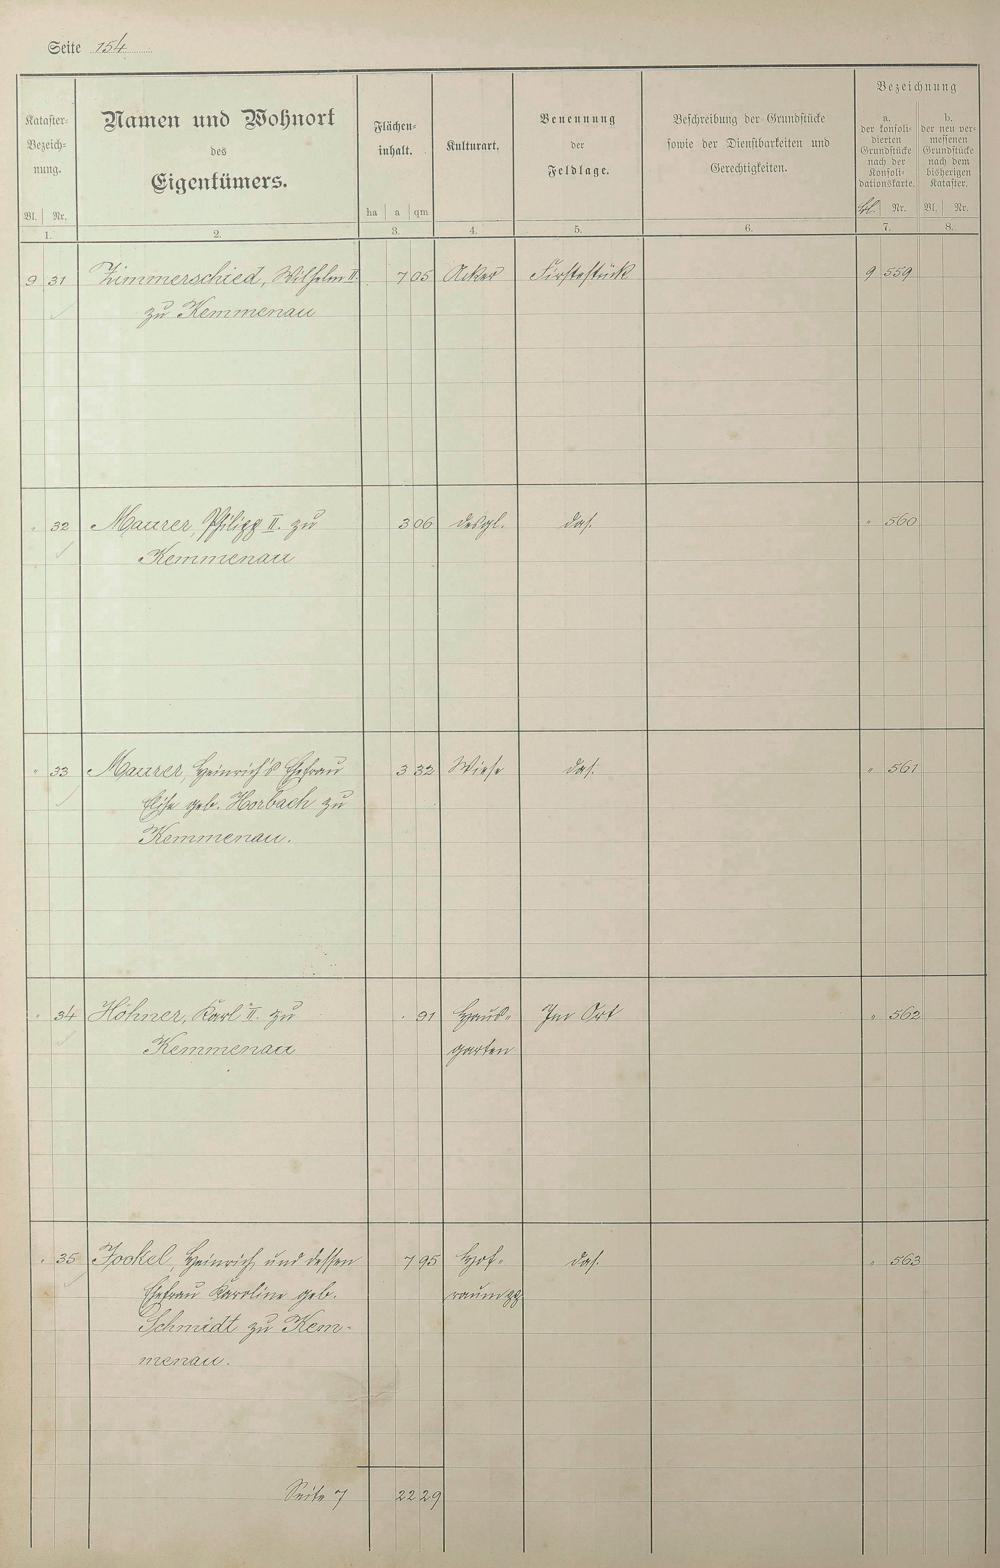 Seite 154
Kataster-Bezeich-nung. Namen und Wohnort des Eigentümers. Flächen-inhalt. Kulturart. Benennung der Feldlage. Beschreibung der Grundstücke sowie der Dienstbarkeiten und Gerechtigkeiten. Bezeichnung
a. der konsoli-dierten Grundstücke nach der Konsoli-dationskarte. b. der neu ver-messenen Grundstücke nach dem bisherigen Kataster.
Bl. Nr. ha a qm Bl. Nr. Bl. Nr.
1. 2. 3. 4. 5. 6. 7. 8.
9 31 Zimmerschied, Wilhelm II. 7 05 Acker Firstestück 9 559
zu Kemmenau
" 32 Maurer, Philipp II. zu 3 06 desgl. das. " 560
Kemmenau
" 33 Maurer, Heinrich's Ehefrau 3 32 Wiese das. " 561
Elise geb. Horbach zu
Kemmenau.
" 34 Höhner, Karl II. zu . 91 Haus- Im Ort " 562
Kemmenau garten
" 35 Jockel, Heinrich und dessen 7 95 Hof- das. " 563
Ehefrau Karoline geb. raum pp
Schmidt zu Kem-
menau.
Seite 7 22 29